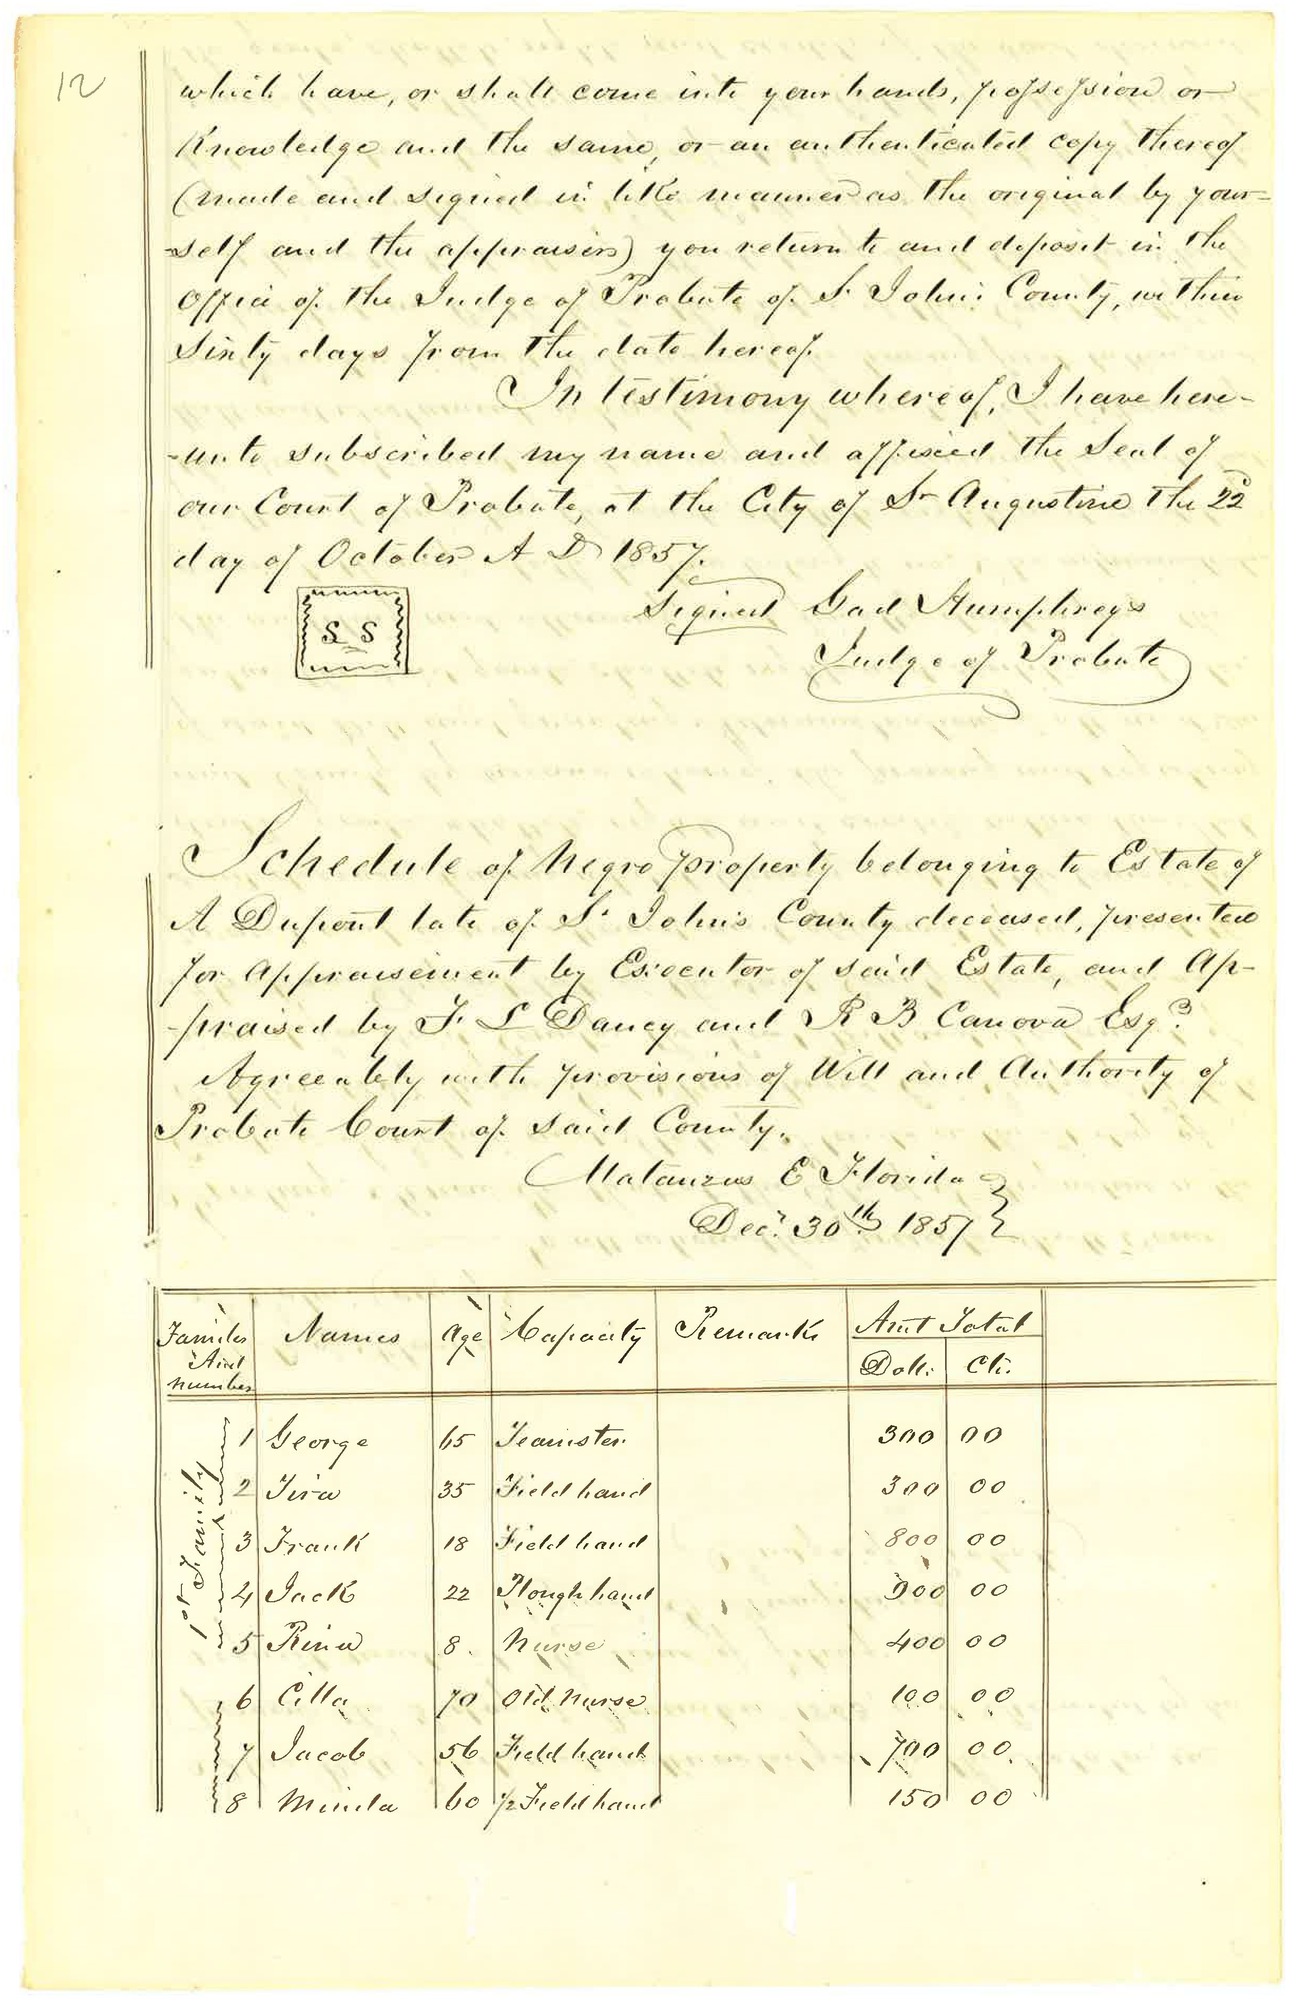 12
which have, or shall come into your hands, possession or
Knowledge and the same, or an authenticated copy thereof
(made and signed in like manner as the original by your-
-self and the appraisers) you return to and deposit in the
Office of the Judge of Probate of St Johns County, within
Sixty days from the date hereof.
In testimony whereof, I have here-
-unto subscribed my name and affixed the Seal of
our Court of Probate, at the City of St Augustine the 22d
day of October A D 1857.
Signed Gad Humphreys
S S
Judge of Probate
Schedule of Negro property belonging to Estate of
A Dupont late of St Johns County deceased, presented
for Appraisement by Executor of said Estate, and Ap-
-praised by F L Dancy and R B Canova Esqs.
Agreeably with provisions of Will and Authority of
Probate Court of said County.
Matanzas E Florida
Decr. 30th 1857
Families And number Names Age Capacity Remarks Amt Total
Dolls. Cts.
1st Family
1 George 65 Teamster 300 00
2 Tira 35 Field hand 300 00
3 Frank 18 Field hand 800 00
4 Jack 22 Plough hand 900 00
5 Rina 8. Nurse 400 00
6 Cilla 70 Old Nurse 100 00
7 Jacob 56 Field hand 700 00
8 Minda 60 1/2 Field hand 150 00